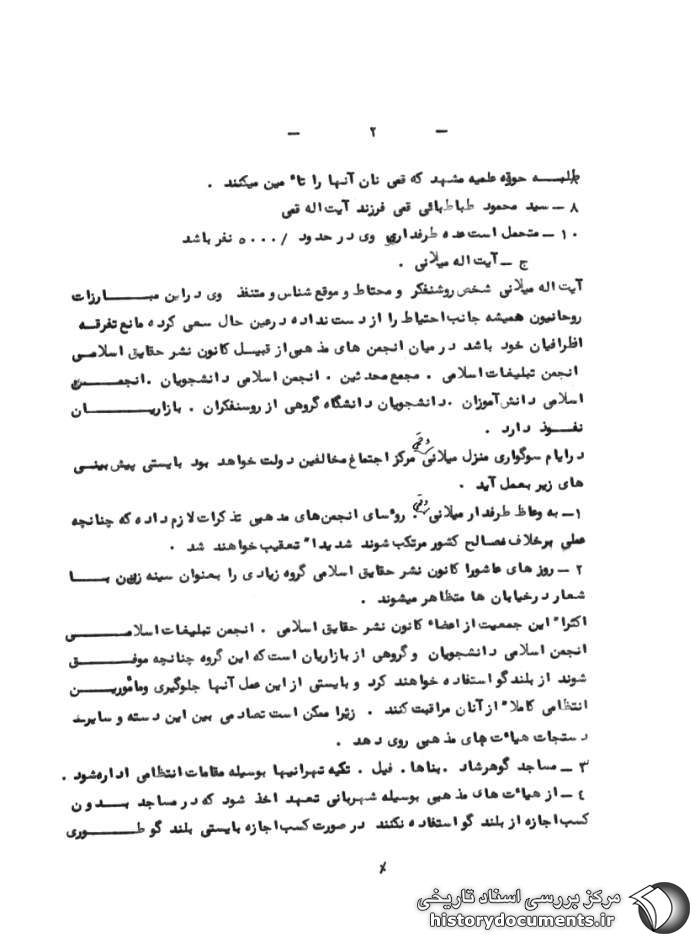 — ۲ —
طلبـــه حوزه علمیه مشهد که قمی نان آنها را تاٴمین میکنند .
۸ ــ سید محمود طباطبائی قمی فرزند آیت اله قمی
۱۰ ــ محتمل است عده طرفداری وی در حدود / ۵۰۰۰ نفر باشد
ج ــ آیت اله میلانی .
آیت اله میلانی شخص روشنفکر و محتاط و موقع شناس و متنفذ وی در این مبـــارزات
روحانیون همیشه جانب احتیاط را از دست نداده درعین حال سعی کرده مانع تفرقه
اطرافیان خود باشد در میان انجمن های مذهبی از قبیـل کانون نشر حقایق اسلامـی
انجمن تبلیغات اسلامی . مجمع محدثین . انجمن اسلامی دانشجویان .انجمـــن
اسلامی دانش آموزان .دانشجویان دانشگاه گروهی از روسنفکران . بازاریـــان
نفـوذ دارد .
درایام سوگواری منزل میلانی وقمی مرکز اجتماع مخالفین دولت خواهد بود بایستی پیش بینی
های زیر بعمل آید .
۱ــ به وعاظ طرفدار میلانی وقمی . روٴسای انجمن های مذهبی تذکرات لازم داده که چنانچه
عملی برخلاف مصالح کشور مرتکب شوند شدیدا" تعقیب خواهند شد .
۲ ــ روز های عاشورا کانون نشر حقایق اسلامی گروه زیادی را بعنوان سینه زن بـــا
شعار درخیابان ها متظاهر میشوند .
اکثرا" این جمعیت از اعضاء کانون نشر حقایق اسلامی . انجمن تبلیغات اسلامـــی
انجمن اسلامی دانشجویان و گروهی از بازاریان است که این گروه چنانچه موفـــق
شوند از بلند گو استفاده خواهند کرد و بایستی از این عمل آنها جلوگیری وماٴموریـــن
انتظامی کاملا" از آنان مراقبت کنند . زیرا ممکن است تصادمی بین این دسته و سایـر
دستجات هیاٴت های مذهبی روی دهد .
۳ ــ مساجد گوهرشاد .بناها . فیل . تکیه تهرانیها بوسیله مقامات انتظامی اداره شود .
٤ ــ از هیاٴت های مذهبی بوسیله شهربانی تعهد اخذ شود که در مساجد بـدون
کسب اجازه از بلند گو استفاده نکنند در صورت کسب اجازه بایستی بلند گو طـــوری
مرکز بررسی اسناد تاریخی
historydocuments.ir